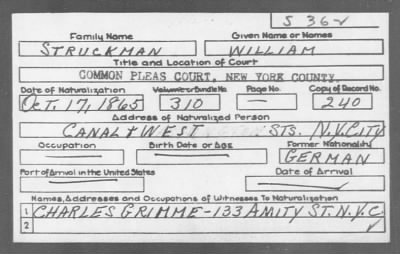 S 362
Family Name Given Name or Names
STRUCKMAN WILLIAM
Title and Location of Court
COMMON PLEAS COURT, NEW YORK COUNTY
Date of Naturalization Volume or Bundle No. Page No. Copy of Record No.
OCT. 17, 1865 310 — 240
Address of Naturalized Person
CANAL & WEST STS. N.Y. CITY
Occupation Birth Date or Age Former Nationality
— — GERMAN
Port of Arrival in the United States Date of Arrival
— —
Names, Addresses and Occupations of Witnesses To Naturalization
1 CHARLES GRIMME-133 AMITY ST. N.Y.C.
2